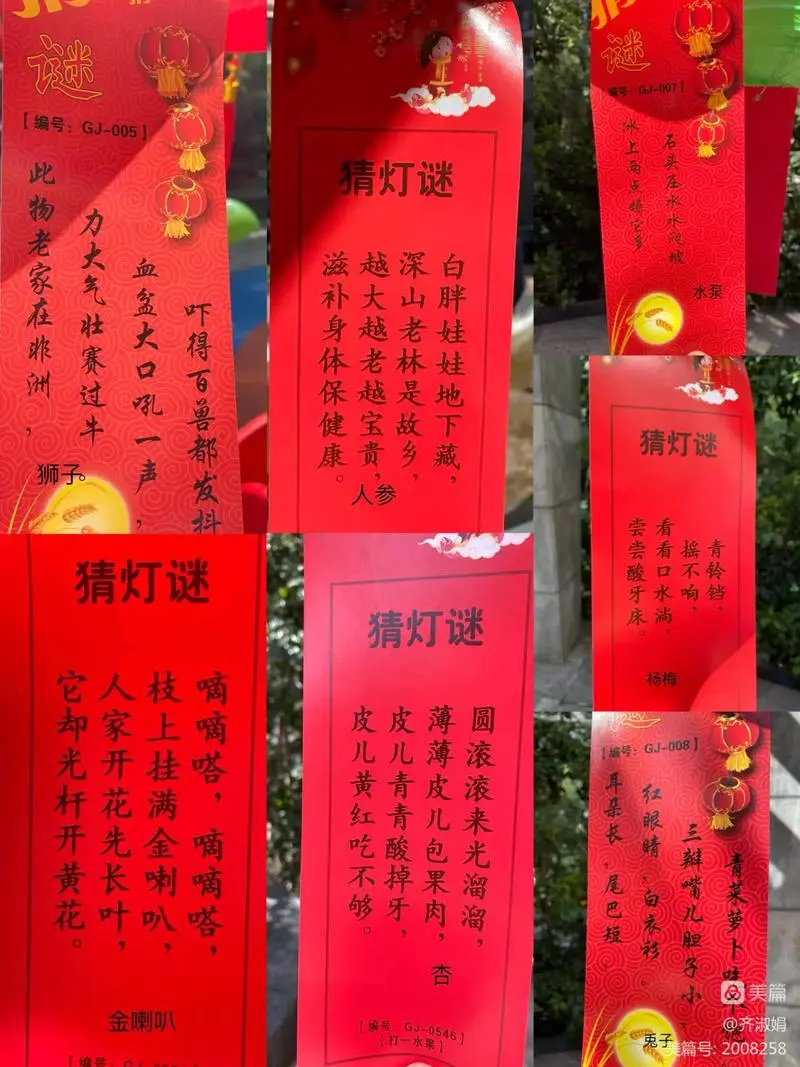 谜
【编号：GJ-005】
此物老家在非洲，
力大气壮赛过牛
血盆大口吼一声，
吓得百兽都发抖
狮子。
猜灯谜
白胖娃娃地下藏，
深山老林是故乡，
越大越老越宝贵，
滋补身体保健康。
人参
谜
编号：GJ-007】
上两点
石头压水水爬坡
水泵
猜灯谜
青铃铛，
摇不响，
看看口水淌，
尝尝酸牙床。
杨梅
猜灯谜
嘀嘀嗒，嘀嘀嗒，
枝上挂满金喇叭，
人家开花先长叶，
它却光杆开黄花。
金喇叭
猜灯谜
圆滚滚来光溜溜，
薄薄皮儿包果肉，
皮儿青青酸掉牙，
皮儿黄红吃不够。
杏
【编号：GJ-0546】
【打一水果】
谜
【编号：GJ-008】
耳朵长，尾巴短，
红眼睛，白衣衫。
三瓣嘴儿胆子小，
青菜萝卜吃
兔子
美篇
@齐淑娟
美篇号：2008258